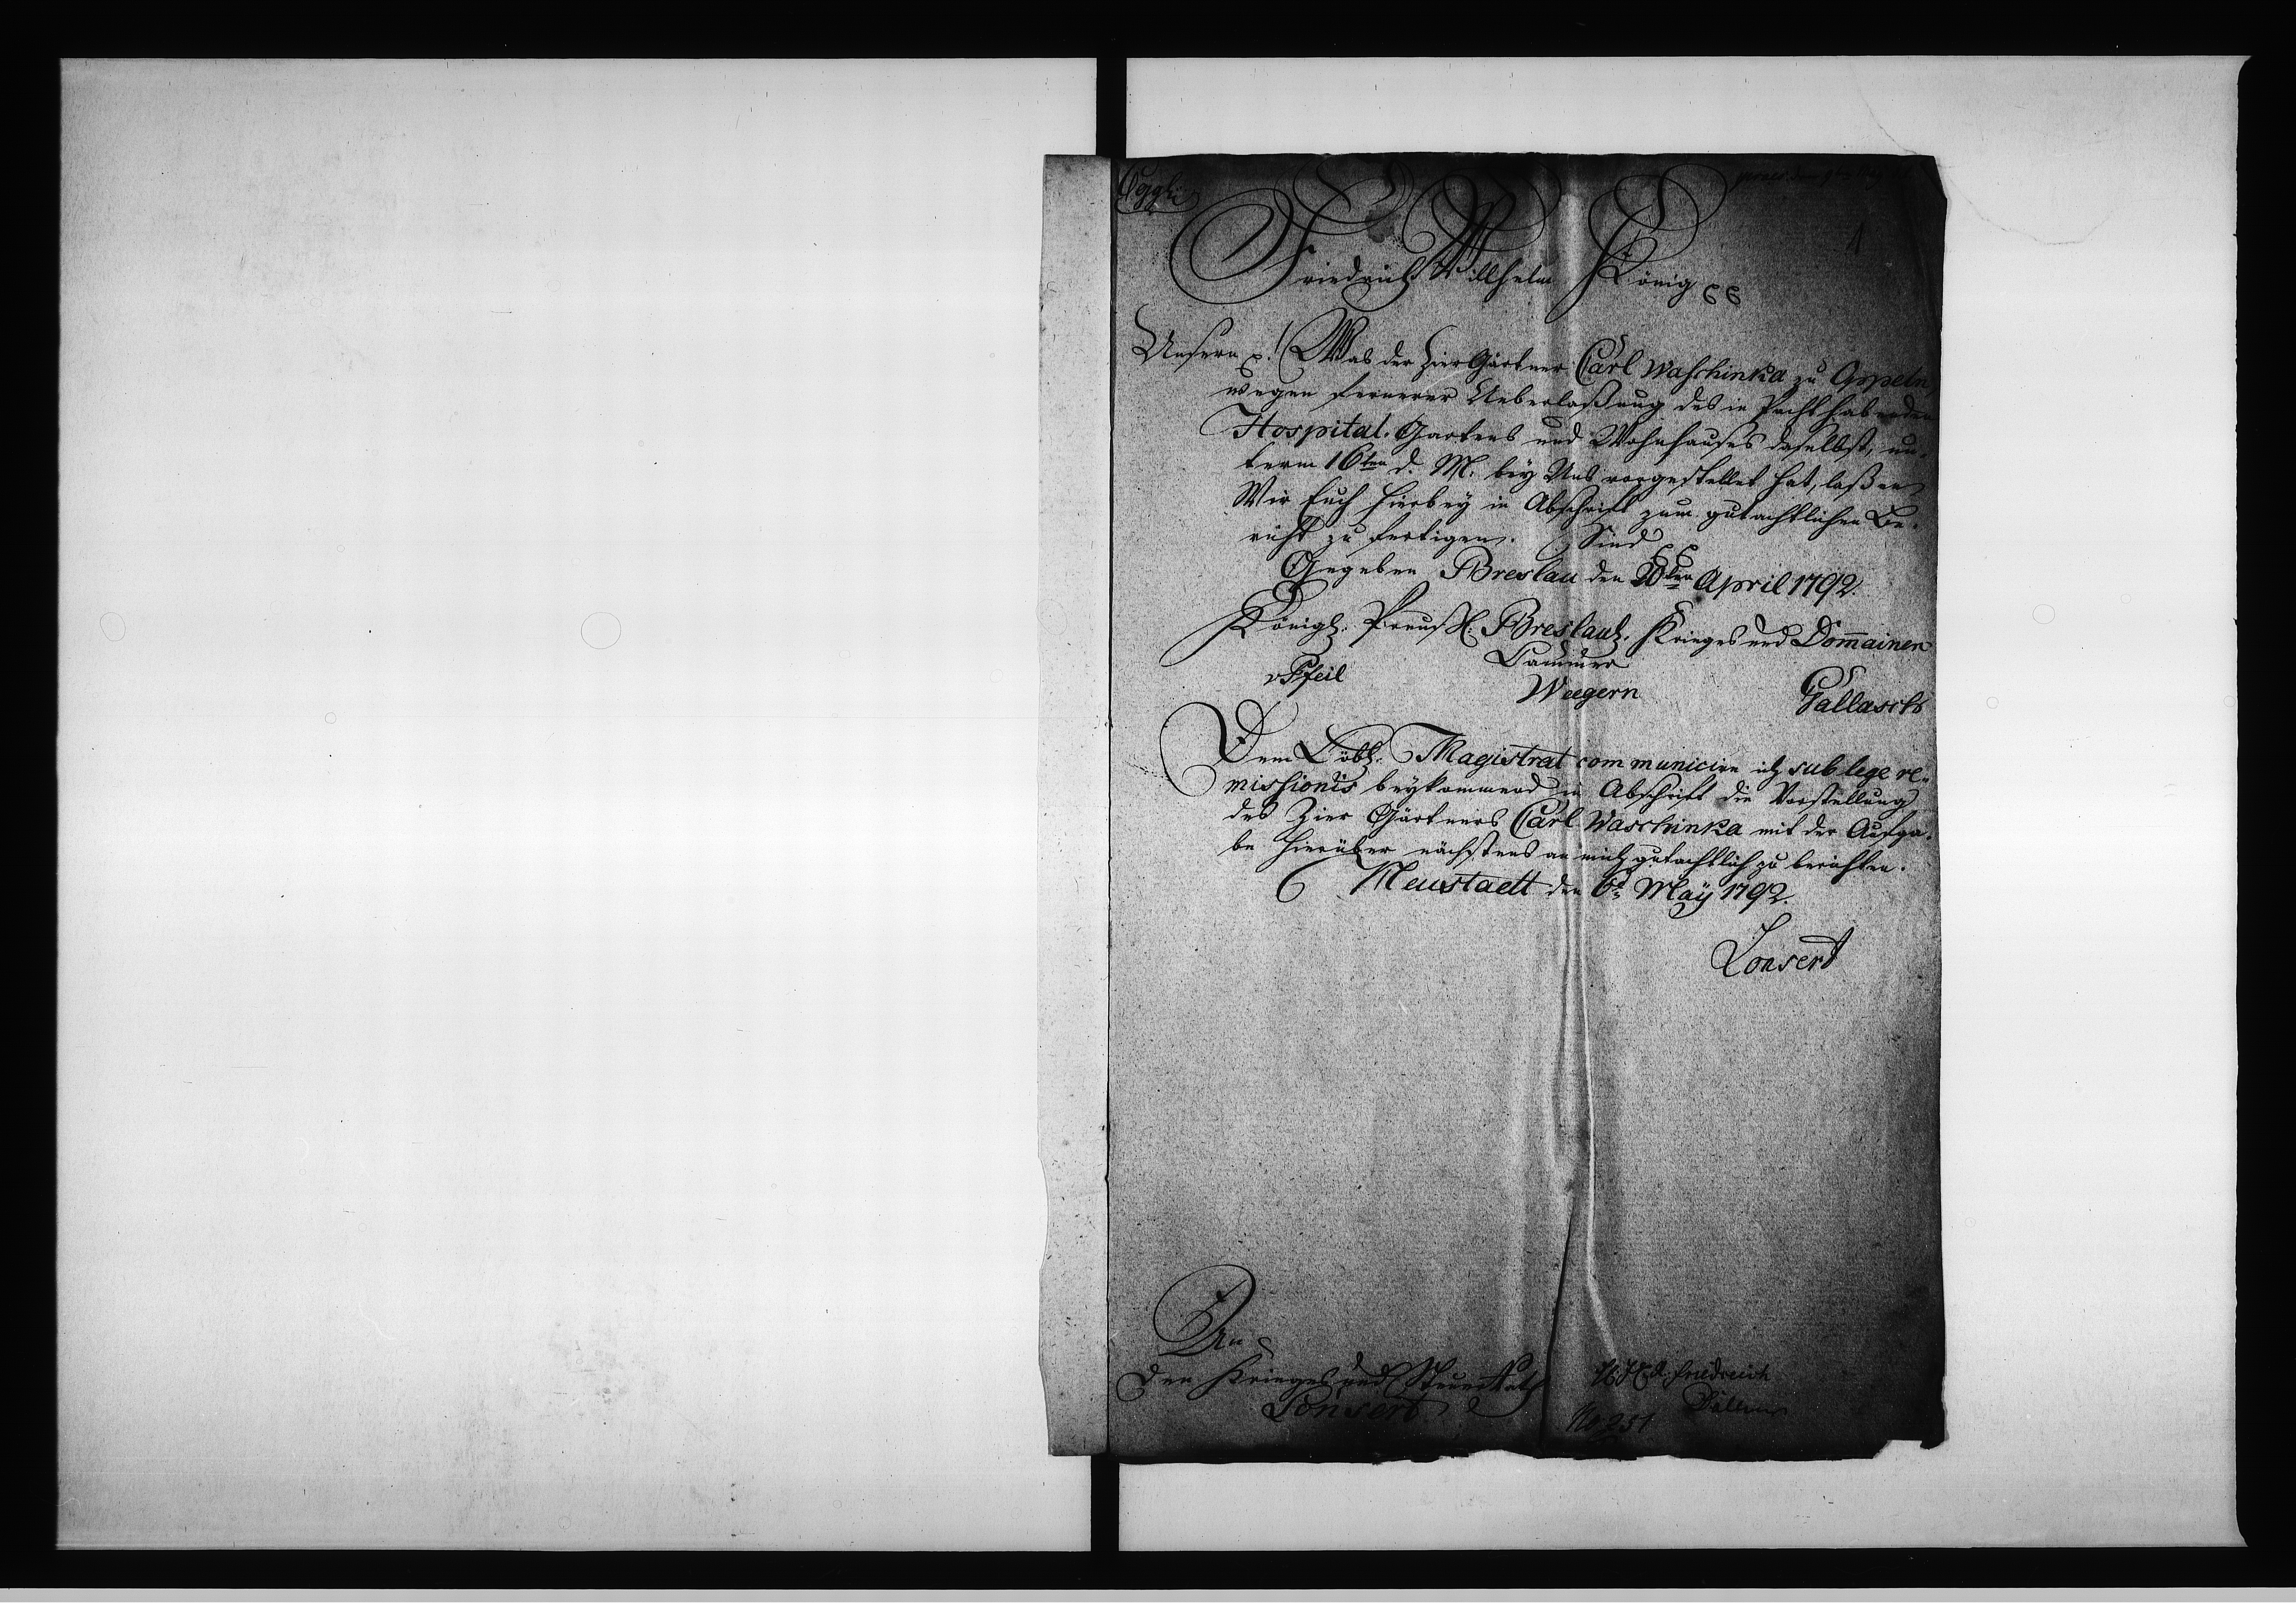 1
Friedrich Willhelm König
Unsern p.! Was der Zier Gärtner Carl Waschinka zu Oppeln,
wegen fernerer Ueberlaßung des in Pacht habenden
Hospital-Gartens und Wohnhauses daselbst, un-
term 16ten d. M. bey Uns vorgestellet hat, laßen
Wir Euch hierbey in Abschrift zum gutachtlichen Be-
richt zu fertigen. Sind
Gegeben Breslau den 20ten April 1792.
Königl. Preuß. Breslausch. Krieges und Domainen
Cammer
v Pfeil Weegern Gallasch
Dem Löbl. Magistrat communicire ich sub lege re-
missionis beykommend in Abschrift die Vorstellung
des Zier Gärtners Carl Waschinka mit der Aufga-
be hierüber nächstens an mich gutachtlich zu berichten.
Neustaedt den 6t May 1792.
Lonsert
An
den Krieges und Steuer Rath
Lonsert
Friedreich
No 251